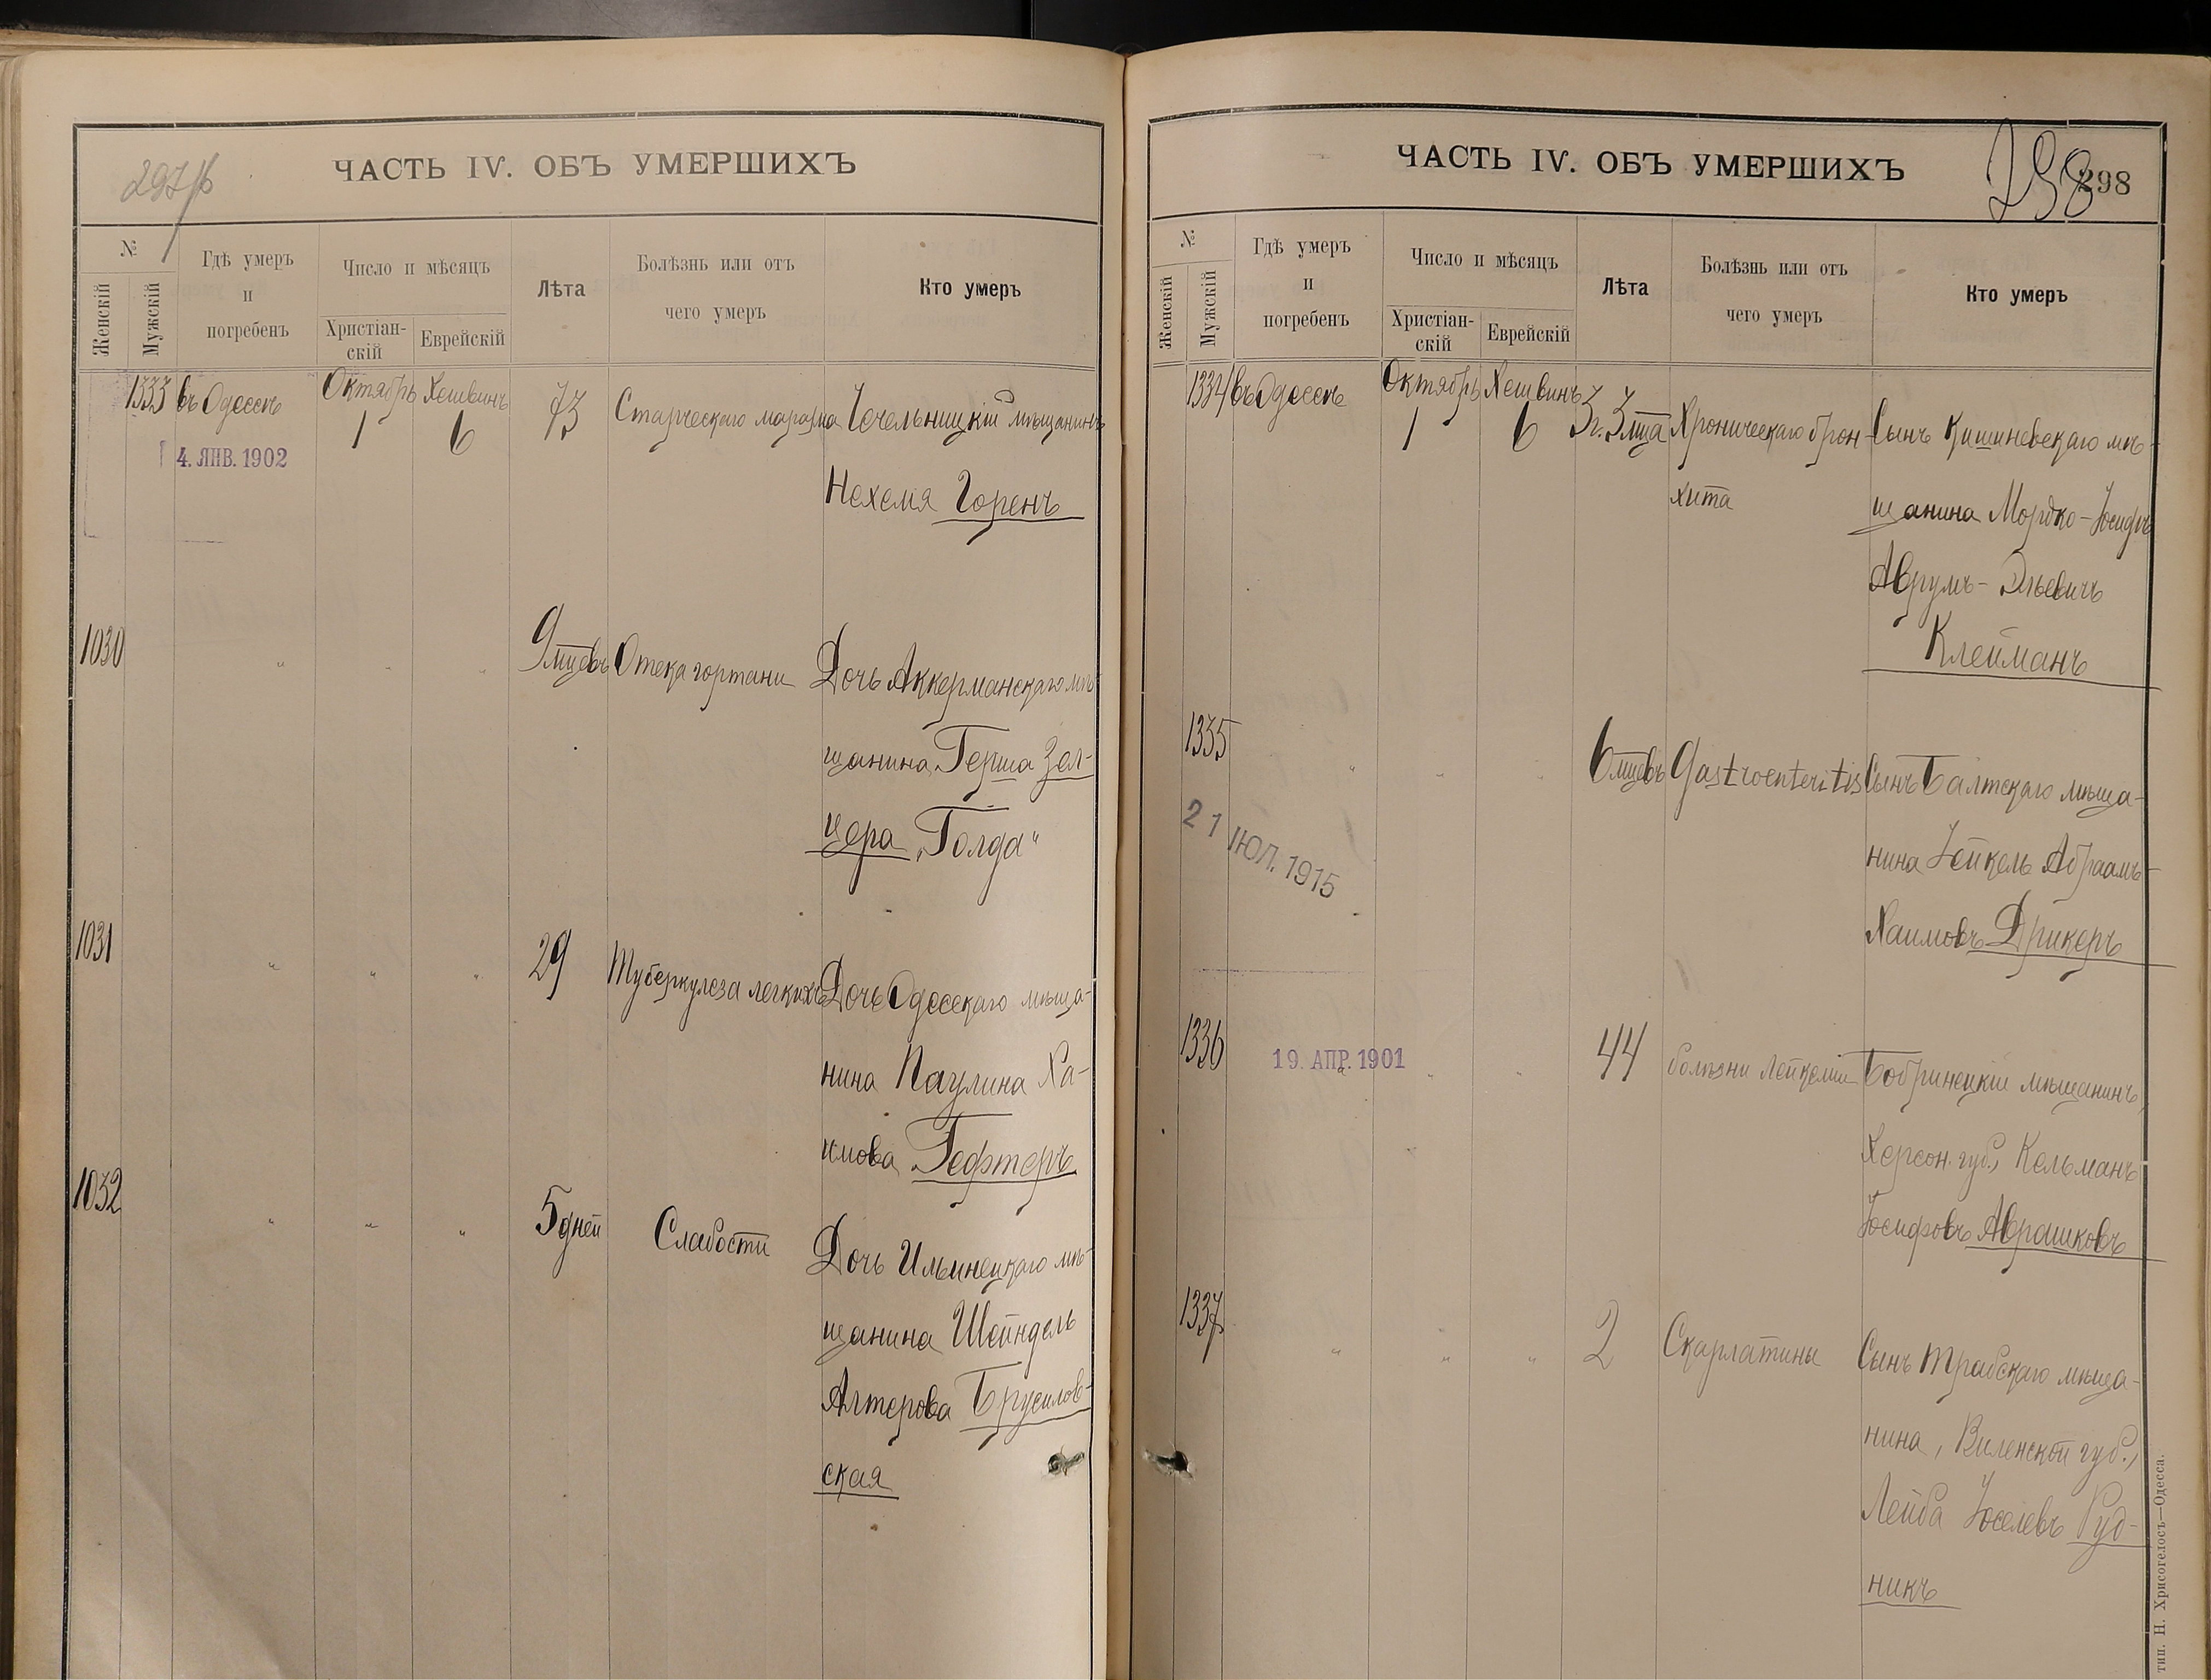 297/б
ЧАСТЬ IV. ОБЪ УМЕРШИХЪ
№
Женскій
Мужскій
Гдѣ умеръ
и
погребенъ
Число и мѣсяцъ
Христіан-
скій
Еврейскій
Лѣта
Болѣзнь или отъ
чего умеръ
Кто умеръ
1333 въ Одессѣ Октябрь 1 Хешвинъ 6 73 Старческаго маразма Чечельницкій мѣщанинъ
4. ЯНВ. 1902
Нехемія Горенъ
1030 " " " 9 мцевъ Отека гортани Дочь Аккерманскаго мѣ-
щанина Герша Зел-
цера „Голда"
1031 " " " 29 Туберкулеза легкихъ Дочь Одесскаго мѣща-
нина Паулина Ха-
имова Гефтеръ
1032 " " " 5 дней Слабости Дочь Ильинецкаго мѣ-
щанина Шейндель
Алтерова Брусилов-
ская
ЧАСТЬ IV. ОБЪ УМЕРШИХЪ
298
298
№
Женскій
Мужскій
Гдѣ умеръ
и
погребенъ
Число и мѣсяцъ
Христіан-
скій
Еврейскій
Лѣта
Болѣзнь или отъ
чего умеръ
Кто умеръ
1334 въ Одессѣ Октябрь 1 Хешвинъ 6 3 г. 3 мца Хроническаго брон- Сынъ Кишиневскаго мѣ-
хита щанина Мордко-Іосифъ
Аврумъ-Эльевичъ
Клейманъ
1335 " " " 6 мцевъ Gastroenteritis Сынъ Балтскаго мѣща-
21 ІЮЛ. 1915
нина Іейкель Абраамъ-
Хаимовъ Дрикеръ
1336 " " " 44 болѣзни Лейкеміи Бобринецкій мѣщанинъ,
19. АПР. 1901
Херсон. губ., Кельманъ
Іосифовъ Аврашковъ
1337 " " " 2 Скарлатины Сынъ Трабскаго мѣща-
нина, Виленской губ.,
Лейба Іоселевъ Руд-
никъ
тип. Н. Хрисогелосъ—Одесса.